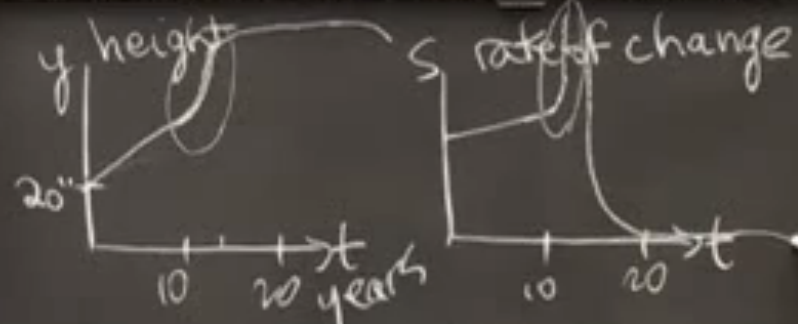 y height
20"
10 20 t
years
s rate of change
10 20 t